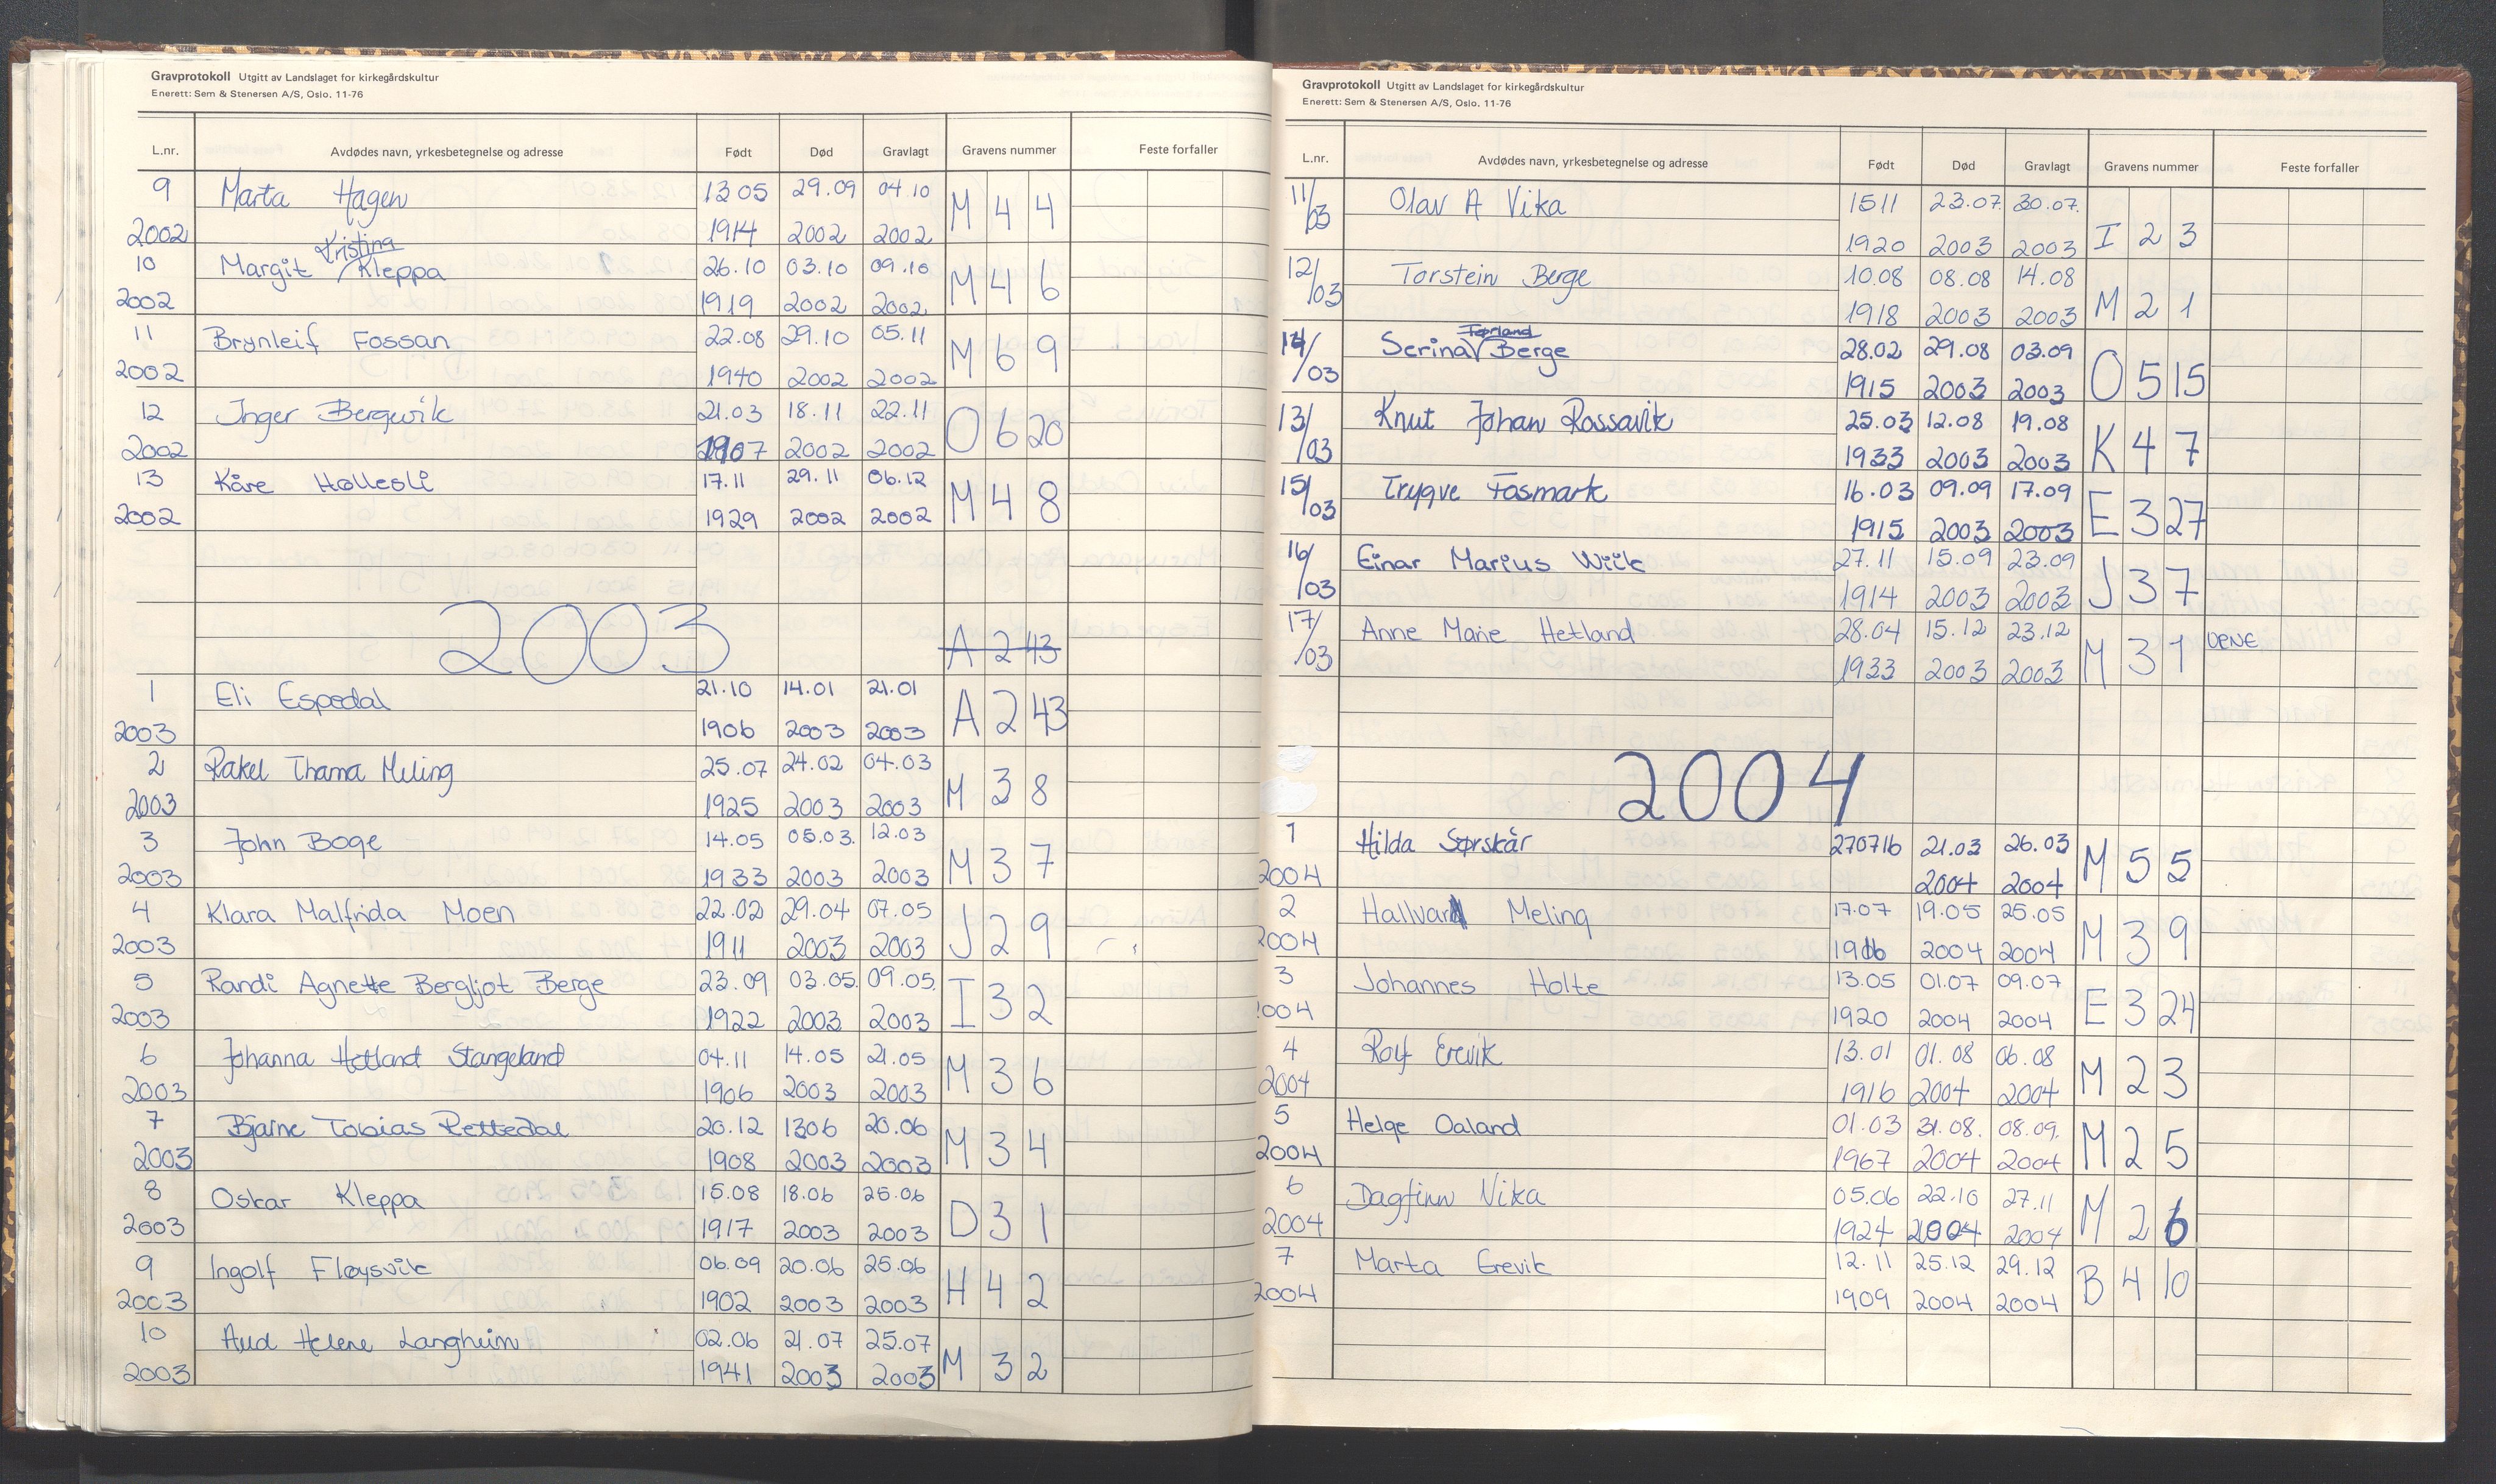 Gravprotokoll Utgitt av Landslaget for kirkegårdskultur
Enerett: Sem & Stenersen A/S, Oslo. 11-76
L.nr. Avdødes navn, yrkesbetegnelse og adresse Født Død Gravlagt Gravens nummer Feste forfaller
9 Marta Hagen 1305 29.09 04.10 M 4 4
2002 1914 2002 2002
Kristina
10 Margit Kleppa 26.10 03.10 09.10 M 4 6
2002 1919 2002 2002
11 Brynleif Fossan 22.08 29.10 05.11 M 6 9
2002 1940 2002 2002
12 Inger Bergevik 21.03 18.11 22.11 O 6 20
2002 1907 2002 2002
13 Kåre Hollesli 17.11 29.11 06.12 M 4 8
2002 1929 2002 2002
2003 A 2 43
1 Eli Espedal 21.10 14.01 21.01 A 2 43
2003 1906 2003 2003
2 Rakel Thama Meling 25.07 24.02 04.03 M 3 8
2003 1925 2003 2003
3 John Boge 14.05 05.03. 12.03 M 3 7
2003 1933 2003 2003
4 Klara Malfrida Moen 22.02 29.04 07.05 J 2 9
2003 1911 2003 2003
5 Randi Agnette Bergljot Berge 23.09 03.05. 09.05. I 3 2
2003 1922 2003 2003
6 Johanna Hetland Stangeland 04.11 14.05 21.05 M 3 6
2003 1906 2003 2003
7 Bjarne Tobias Rettedal 20.12 1306 20.06 M 3 4
2003 1908 2003 2003
8 Oskar Kleppa 15.08 18.06 25.06 D 3 1
2003 1917 2003 2003
9 Ingolf Fløysvik 06.09 20.06 25.06 H 4 2
2003 1902 2003 2003
10 Aud Helene Langheim 02.06 21.07 25.07 M 3 2
2003 1941 2003 2003
Gravprotokoll Utgitt av Landslaget for kirkegårdskultur
Enerett: Sem & Stenersen A/S, Oslo. 11-76
L.nr. Avdødes navn, yrkesbetegnelse og adresse Født Død Gravlagt Gravens nummer Feste forfaller
11/03 Olav A Vika 1511 23.07. 30.07. I 2 3
1920 2003 2003
12/03 Torstein Berge 10.08 08.08 14.08 M 2 1
1918 2003 2003
Tørland
14/03 Serina Berge 28.02 29.08 03.09 O 5 15
1915 2003 2003
13/03 Knut Johan Rossavik 25.03 12.08 19.08 K 4 7
1933 2003 2003
15/03 Trygve Fosmark 16.03 09.09 17.09 E 3 27
1915 2003 2003
16/03 Einar Marius Wiik 27.11 15.09 23.09 J 3 7
1914 2003 2003
17/03 Anne Marie Hetland 28.04 15.12 23.12 M 3 1 URNE
1933 2003 2003
2004
1 Hilda Sørskår 270716 21.03 26.03 M 5 5
2004 2004 2004
2 Hallvard Meling 17.07 19.05 25.05 M 3 9
2004 1906 2004 2004
3 Johannes Holte 13.05 01.07 09.07 E 3 24
2004 1920 2004 2004
4 Rolf Erevik 13.01 01.08 06.08 M 2 3
2004 1916 2004 2004
5 Helge Oaland 01.03 31.08. 08.09. M 2 5
2004 1967 2004 2004
6 Dagfinn Vika 05.06 22.10 27.11 M 2 6
2004 1924 2004 2004
7 Marta Erevik 12.11 25.12 29.12 B 4 10
2004 1909 2004 2004